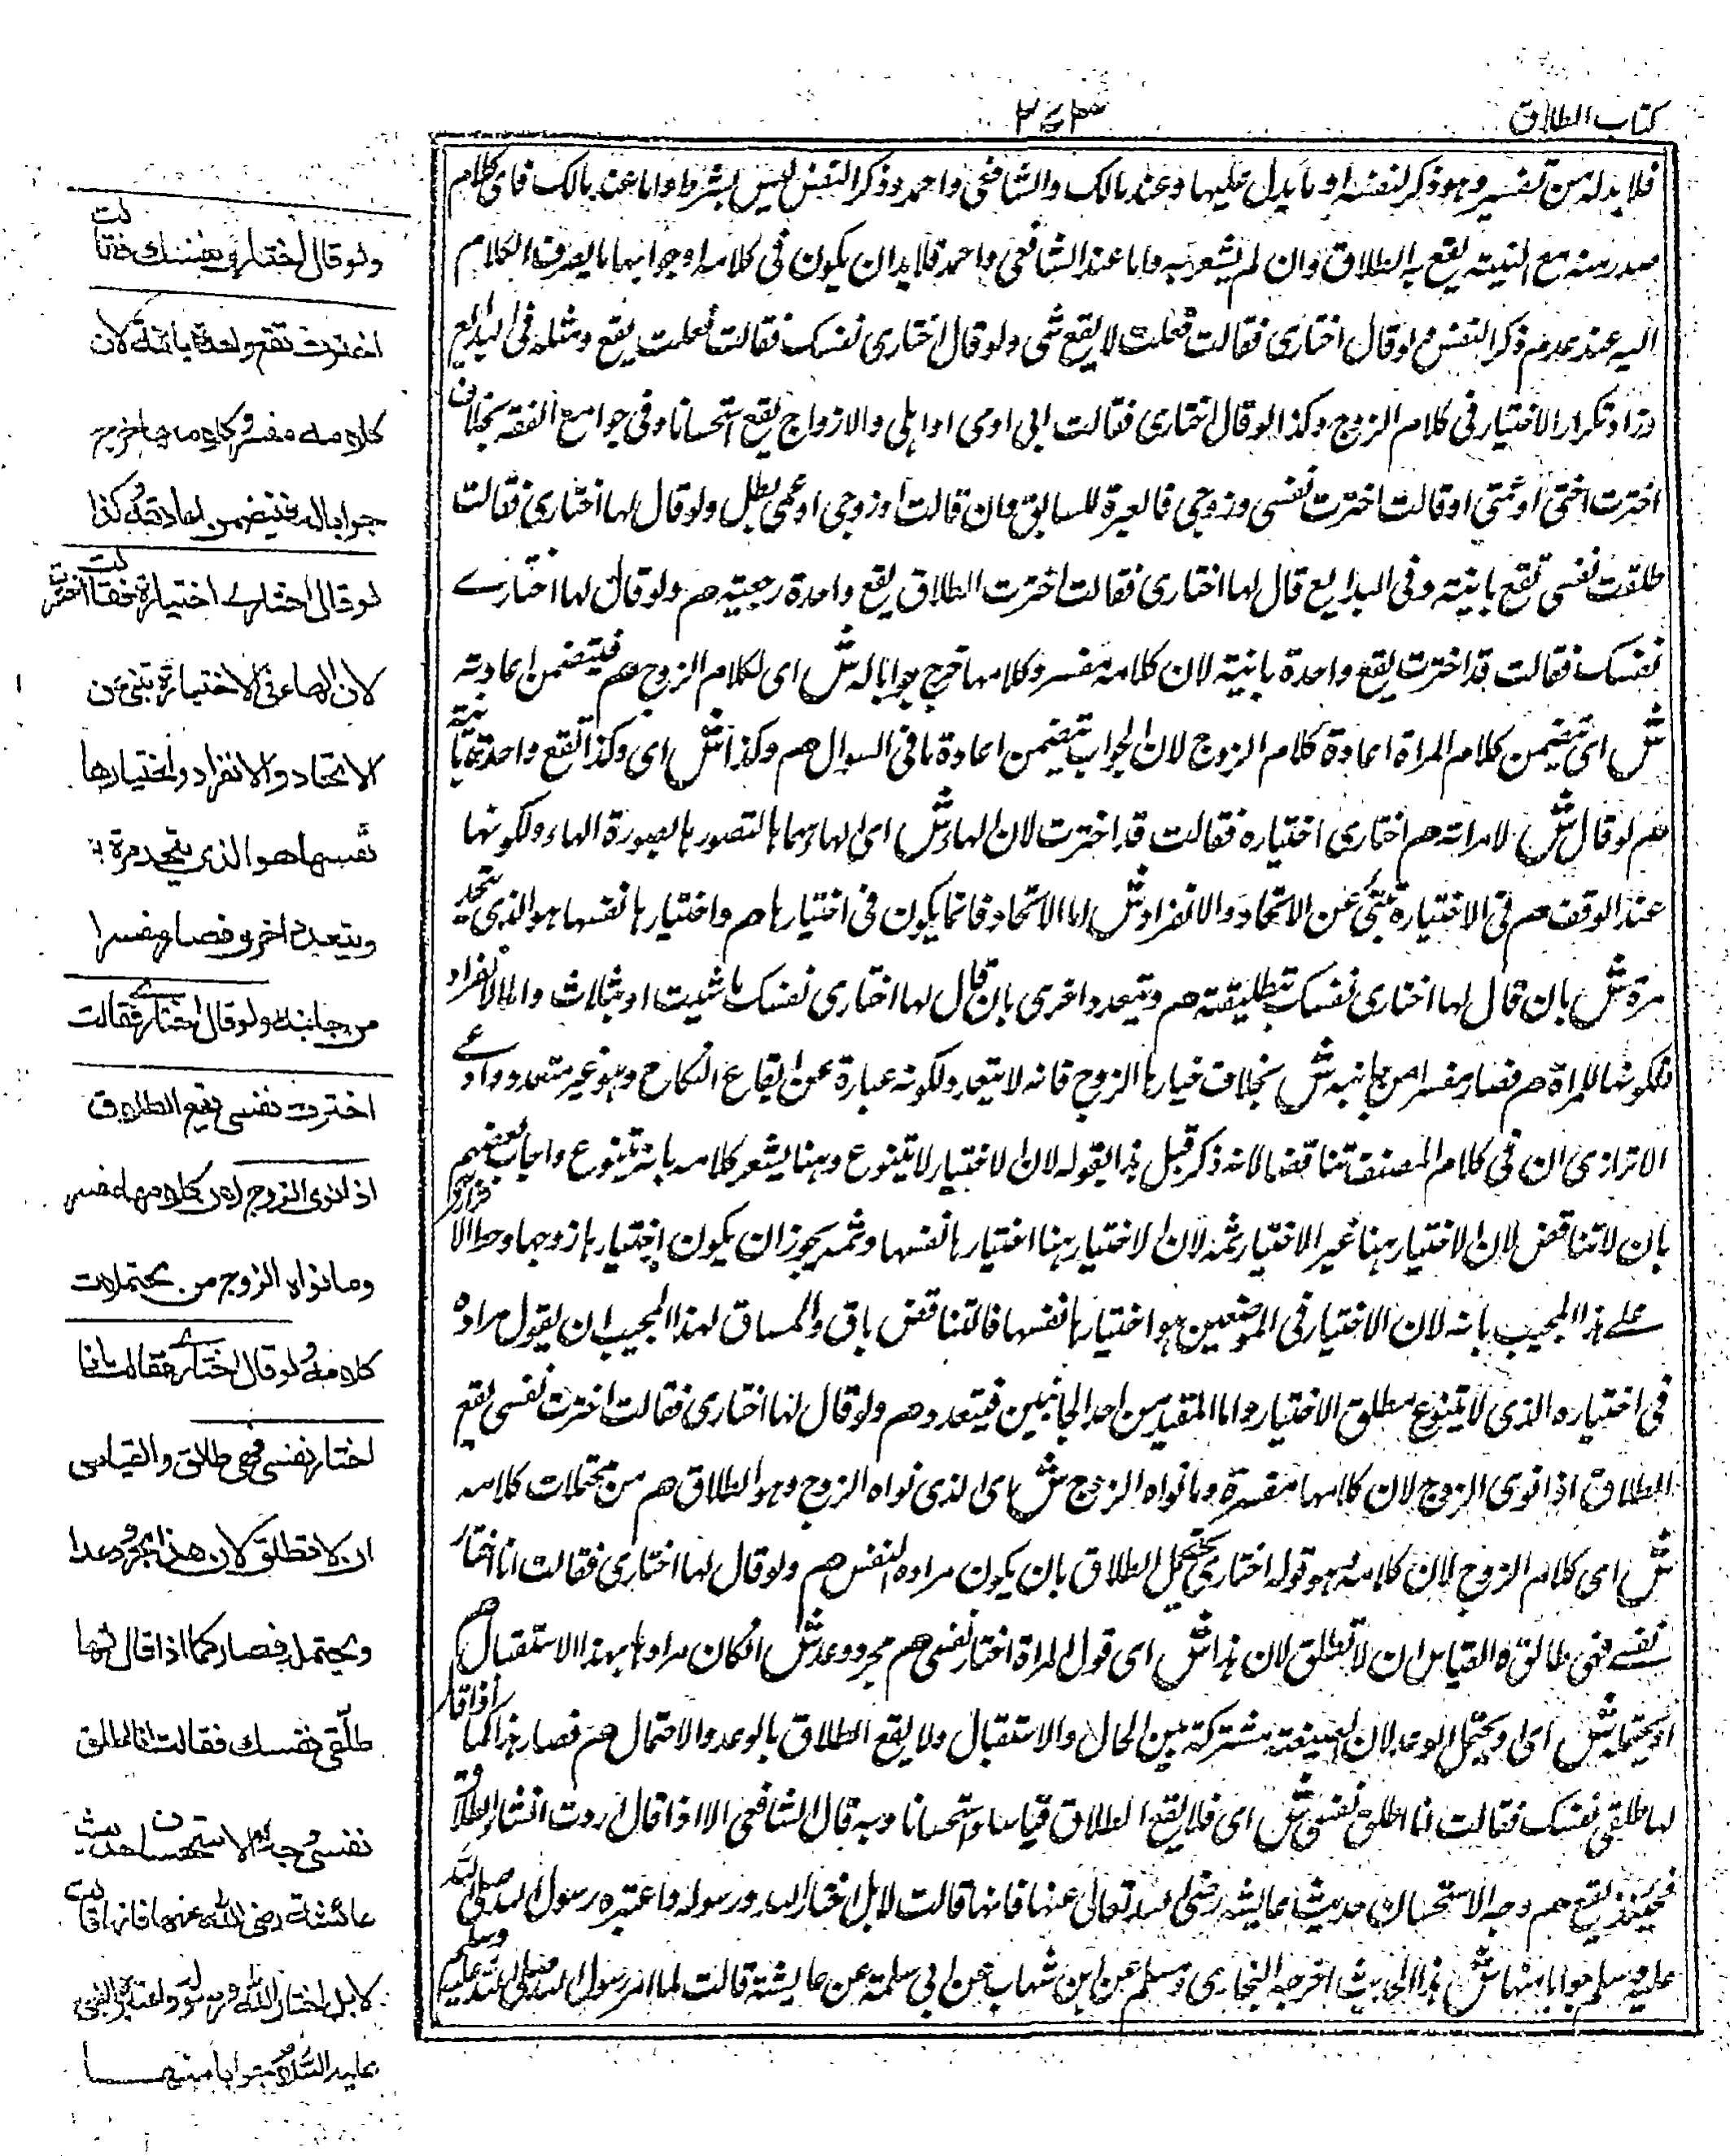 كتاب الطلاق
٢٤٣
فلا بد له من تفسير وهو ذكر لنفسه او ما يدل عليها وعند مالك والشافعي واحمد وذكر النفس ليس بشرط واما عند مالك فاي كلام
صدر منه مع النية يقع به الطلاق وان لم يشعر به واما عند الشافعي واحمد فلا بد ان يكون في كلامه او جوابها ما يصرف الكلام
اليه عند عدم ذكر النفس م لو قال اختاري فقالت فعلت لا يقع شي ولو قال اختاري نفسك فقالت فعلت يقع ومثله في البدايع
وزاد تكرار الاختيار في كلام الزوج وكذا لو قال اختاري فقالت ابي او امي او اهلي والازواج يقع استحسانا وفي جوامع الفقه بخلاف
اخترت اختي او عمتي او قالت اخترت نفسي وزوجي فالعبرة للسابق وان قالت او زوجي او عمي بطل ولو قال لها اختاري فقالت
طلقت نفسي تقع باينة وفي البدايع قال لها اختاري فقالت اخترت الطلاق يقع واحدة رجعية هم ولو قال لها اختاري
نفسك فقالت قد اخترت يقع واحدة باينة لان كلامه مفسر وكلامها خرج جوابا له ش اي لكلام الزوج هم فيتضمن اعادته
ش اي تتضمن كلام المراة اعادة كلام الزوج لان الجواب يتضمن اعادة ما في السوال هم وكذا ش اي وكذا تقع واحدة باينة
هم لو قال ش لامراته هم اختاري اختياره فقالت قد اخترت لان الهاء ش اي الهاء وسماها لتصورها بصورة الهاء ولكونها
عند الوقف هم في الاختيارة تنبئ عن الاتحاد والانفراد ش اما الاتحاد فانما يكون في اختيارها هم واختيارها نفسها هو الذي يتحد
مرة ش بان قال لها اختاري نفسك بتطليقة هم ويتعدد اخرى بان قال لها اختاري نفسك ما شيت او بثلاث واما الانفراد
فلكونها للمراة هم فصار مفسرا من جانبه ش بخلاف خيارها الزوج فانه لا يتعدد لكونه عبارة عن ايقاع النكاح وهو غير متعدد وادعى
الاترازي ان في كلام المصنف تناقضا لانه ذكر قبل هذا بقوله لان الاختيار لا يتنوع وهنا يشعر كلامه بانه يتنوع واجاب بعضهم
بان لا تناقض لان الاختيار هنا غير الاختيار ثمه لان الاختيار هنا اختيارها نفسها وثمه يجوز ان يكون اختيارها زوجها وحط الاترازي
على هذا المجيب بانه لان الاختيار في الموضعين هو اختيارها نفسها فالتناقض باق والمساق لهذا المجيب ان يقول مراده
في اختياره الذي لا يتنوع مطلق الاختيار واما المقيد من احد الجانبين فيتعدد هم ولو قال لها اختاري فقالت اخترت نفسي يقع
الطلاق اذا نوى الزوج لان كلامها مفسرة وما نواه الزوج ش اي الذي نواه الزوج وهو الطلاق هم من محتملات كلامه
ش اي كلام الزوج لان كلامه هو قوله اختاري يحتمل الطلاق بان يكون مراده النفس هم ولو قال لها اختاري فقالت انا اختار
نفسي فهي طالق والقياس ان لا تطلق لان هذا ش اي قول المراة اختار نفسي هم مجرد وعد ش ان كان مرادها بهذا الاستقبال هم
او يحتمله ش اي ويحتمل الوعد لان الصيغة مشتركة بين الحال والاستقبال ولا يقع الطلاق بالوعد والاحتمال هم فصار هذا كما اذا قال
لها طلقي نفسك فقالت انا اطلق نفسي ش اي فلا يقع الطلاق قياسا واستحسانا وبه قال الشافعي الا اذا قال اردت انشاء الطلاق
فحينئذ يقع هم وجه الاستحسان حديث عايشة رضي الله تعالى عنها فانها قالت لا بل اختار الله ورسوله واعتبره رسول الله صلى الله
عليه وسلم جوابا منها ش هذا الحديث اخرجه البخاري ومسلم عن ابن شهاب عن ابي سلمة عن عايشة قالت لما امر رسول الله صلى الله عليه وسلم
ولو قال اختاري نفسك فقالت
اخترت تقع واحدة بائنة لان
كلامه مفسر وكلامها خرج
جوابا له فيتضمن اعادته وكذا
لو قال اختاري اختيارة فقالت اخترت
لان الهاء في الاختيارة تنبئ عن
الاتحاد والانفراد واختيارها
نفسها هو الذي يتحد مرة
ويتعدد اخرى فصار مفسرا
من جانبه ولو قال اختاري فقالت
اخترت نفسي يقع الطلاق
اذا نوى الزوج لان كلامها مفسر
وما نواه الزوج من محتملات
كلامه ولو قال اختاري فقالت انا
اختار نفسي فهي طالق والقياس
ان لا تطلق لان هذا مجرد وعد
او يحتمله فصار كما اذا قال لها
طلّقي نفسك فقالت انا اطلق
نفسي وجه الاستحسان حديث
عائشة رضي الله عنها فانها قالت
لا بل اختار الله ورسوله واعتبره النبي
عليه السّلام جوابا منها